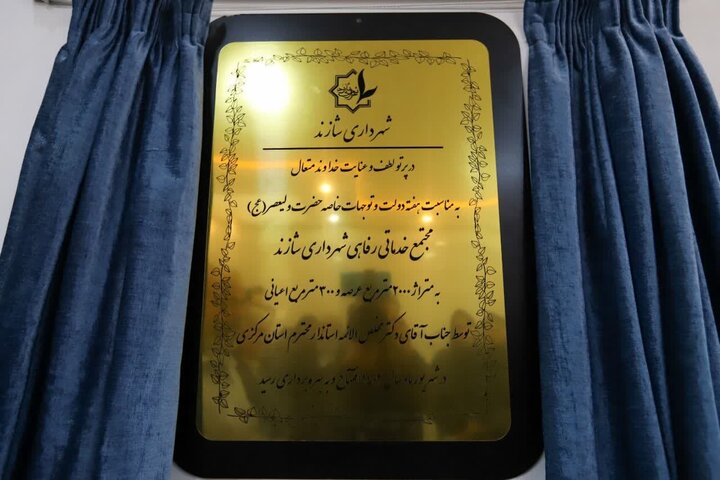 شهرداری شازند
در پرتو لطف و عنایت خداوند متعال
به مناسبت هفته دولت و توجهات خاصه حضرت ولیعصر (عج)
مجتمع خدماتی رفاهی شهرداری شازند
به متراژ ۲۰۰۰ مترمربع عرصه و ۳۰۰ مترمربع اعیانی
توسط جناب آقای دکتر مخلص الائمه استاندار محترم استان مرکزی
در شهریور ماه سال افتتاح و به بهره برداری رسید